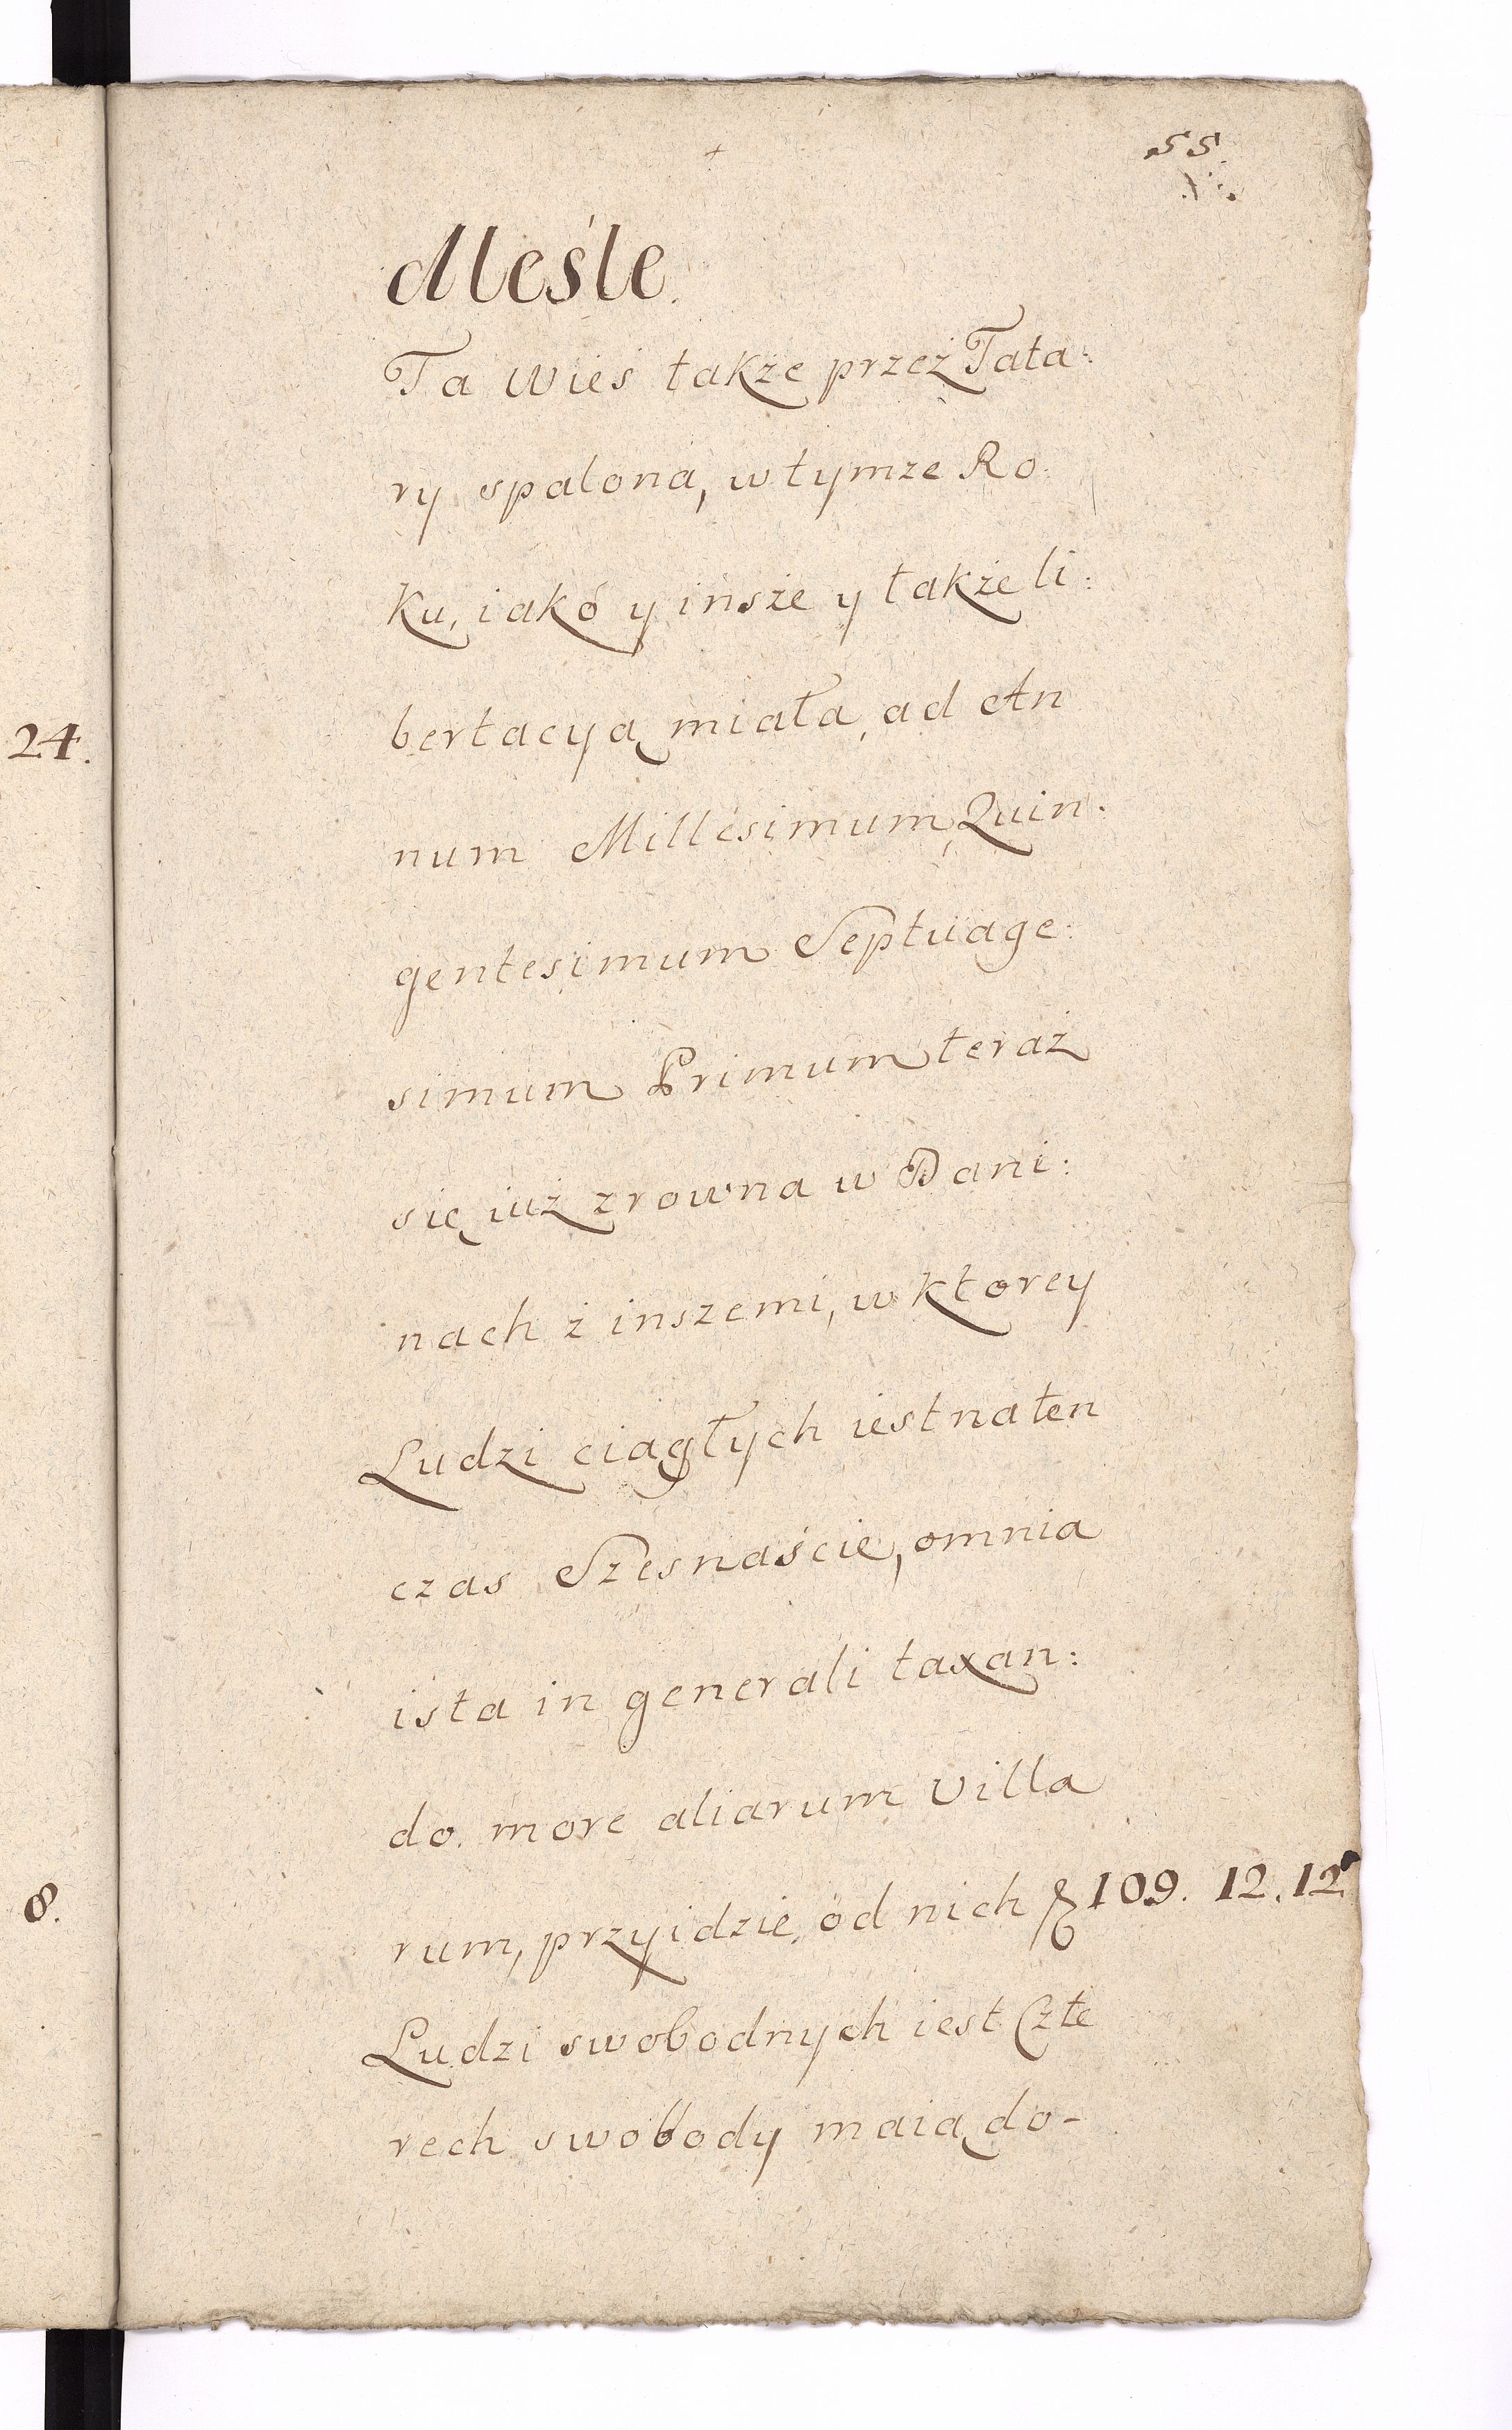 55.
Meśle.
Ta wieś także przeż Tata:
ry spalona, w tymze Ro:
ku, iakó y insże y także li:
bertacyą miała, ad An
num Millesimum Quin:
gentesimum Septuage:
simum Primum teraż
się iuż zrowna w Dani:
nach ż inszemi, w ktorey
Ludzi ciągłych iest na ten
czas Szesnaście, omnia
ista in generali taxan:
do. more aliarum Villa
rum, przyidzie, od nich 109. 12. 12
Ludzi swobodnych iest Czte
rech swobody maią do-
24.
8.